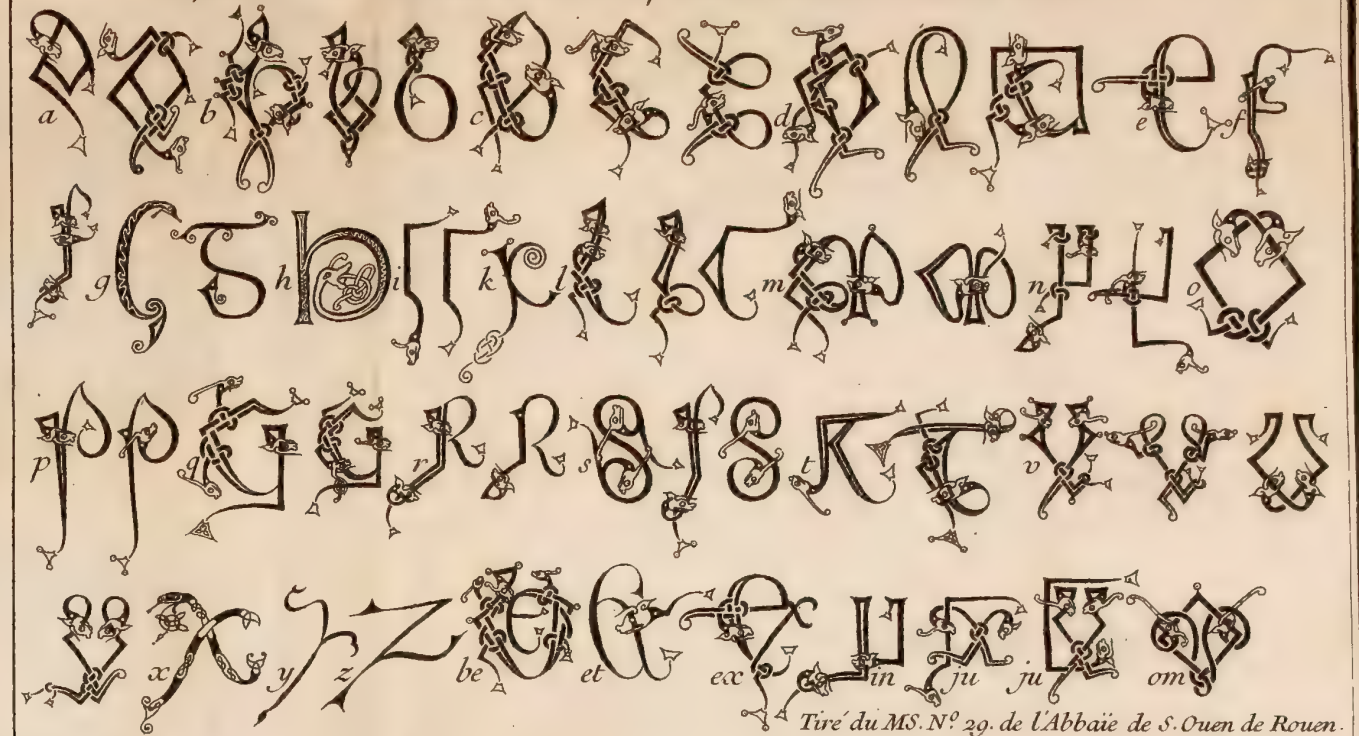 a b c d e f
g h i k l m n o
p q r s t v
x y z be et ex in ju ju om
Tiré du MS. Nº. 29. de l'Abbaïe de S. Ouen de Rouen.